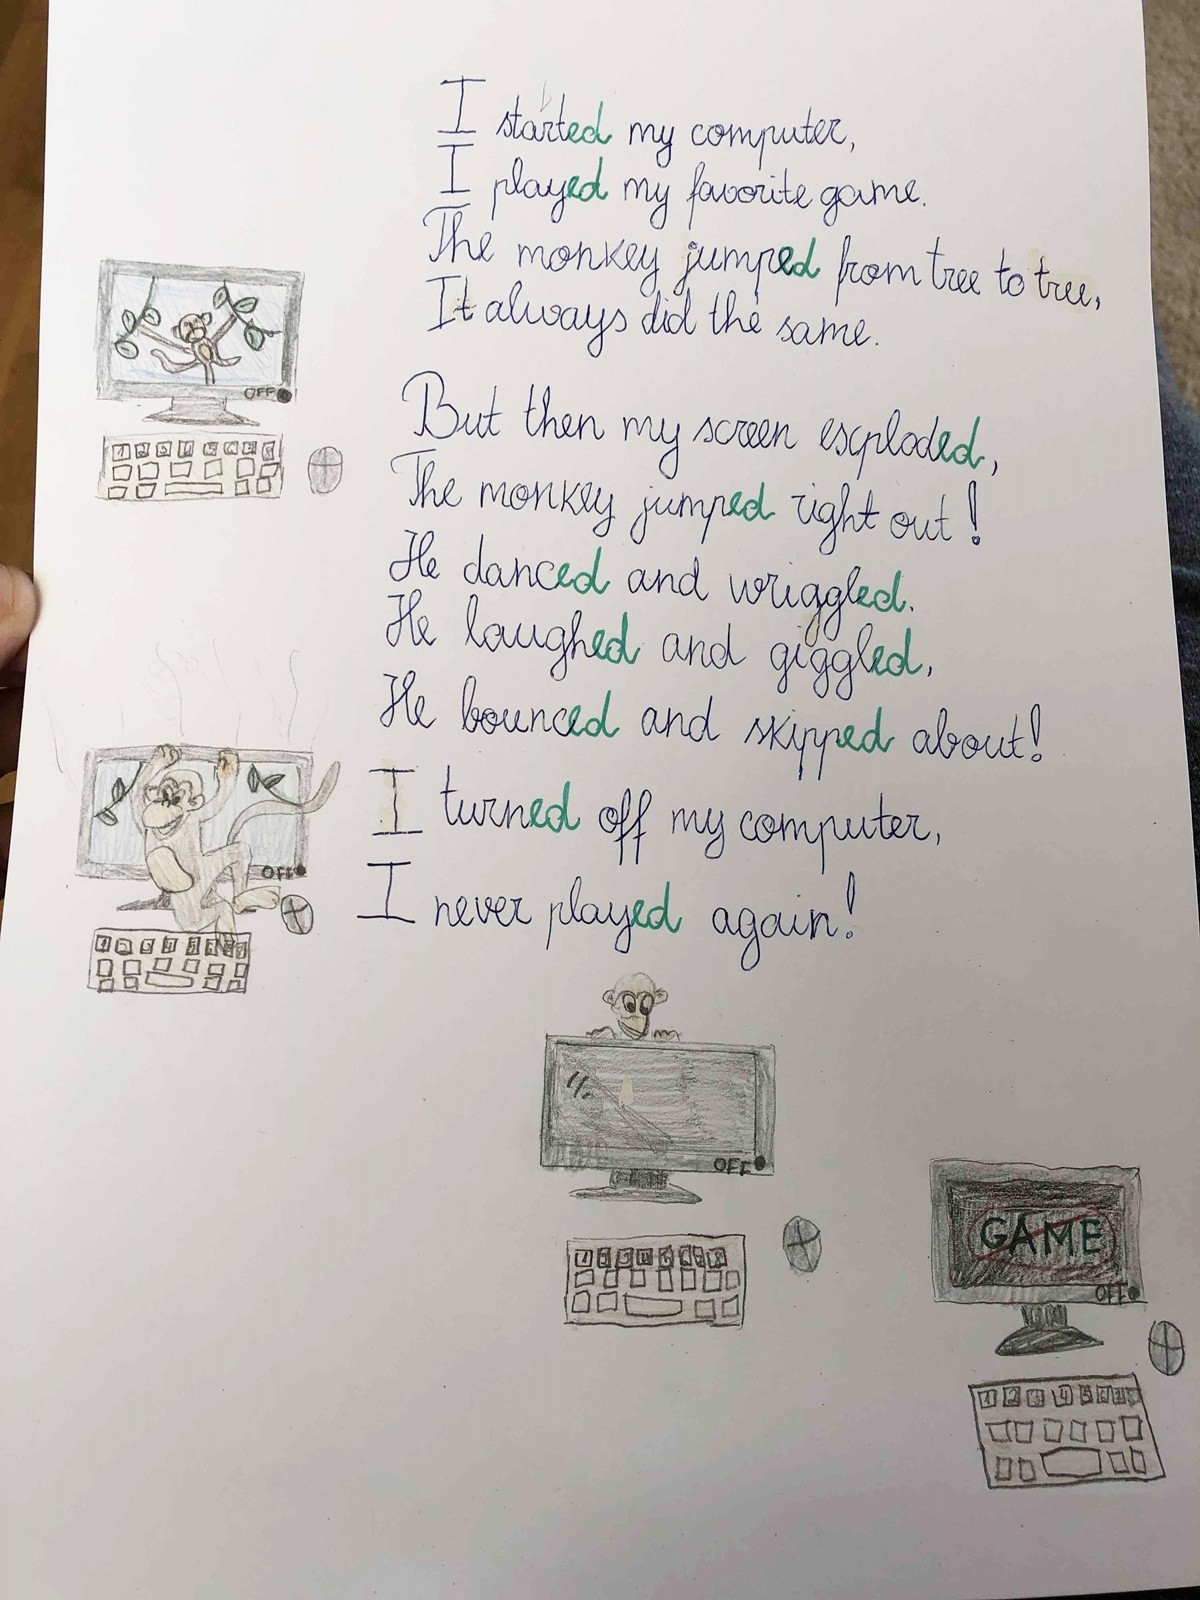 I started my computer,
I played my favorite game.
The monkey jumped from tree to tree,
It always did the same.
But then my screen exploded,
The monkey jumped right out!
He danced and wriggled.
He laughed and giggled,
He bounced and skipped about!
I turned off my computer,
I never played again!
OFF
OFF
OFF
GAME
OFF